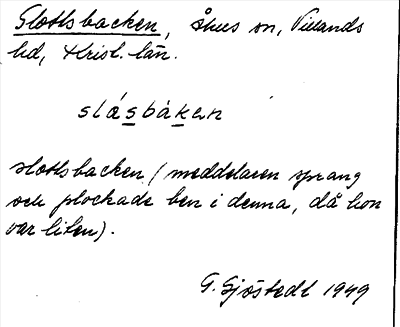 Slottsbacken, Åhus sn, Villands
hd, Krist. län.
slásbákɛn
slottsbacken (meddelaren sprang
och plockade ben i denna, då hon
var liten).
G. Sjöstedt 1949